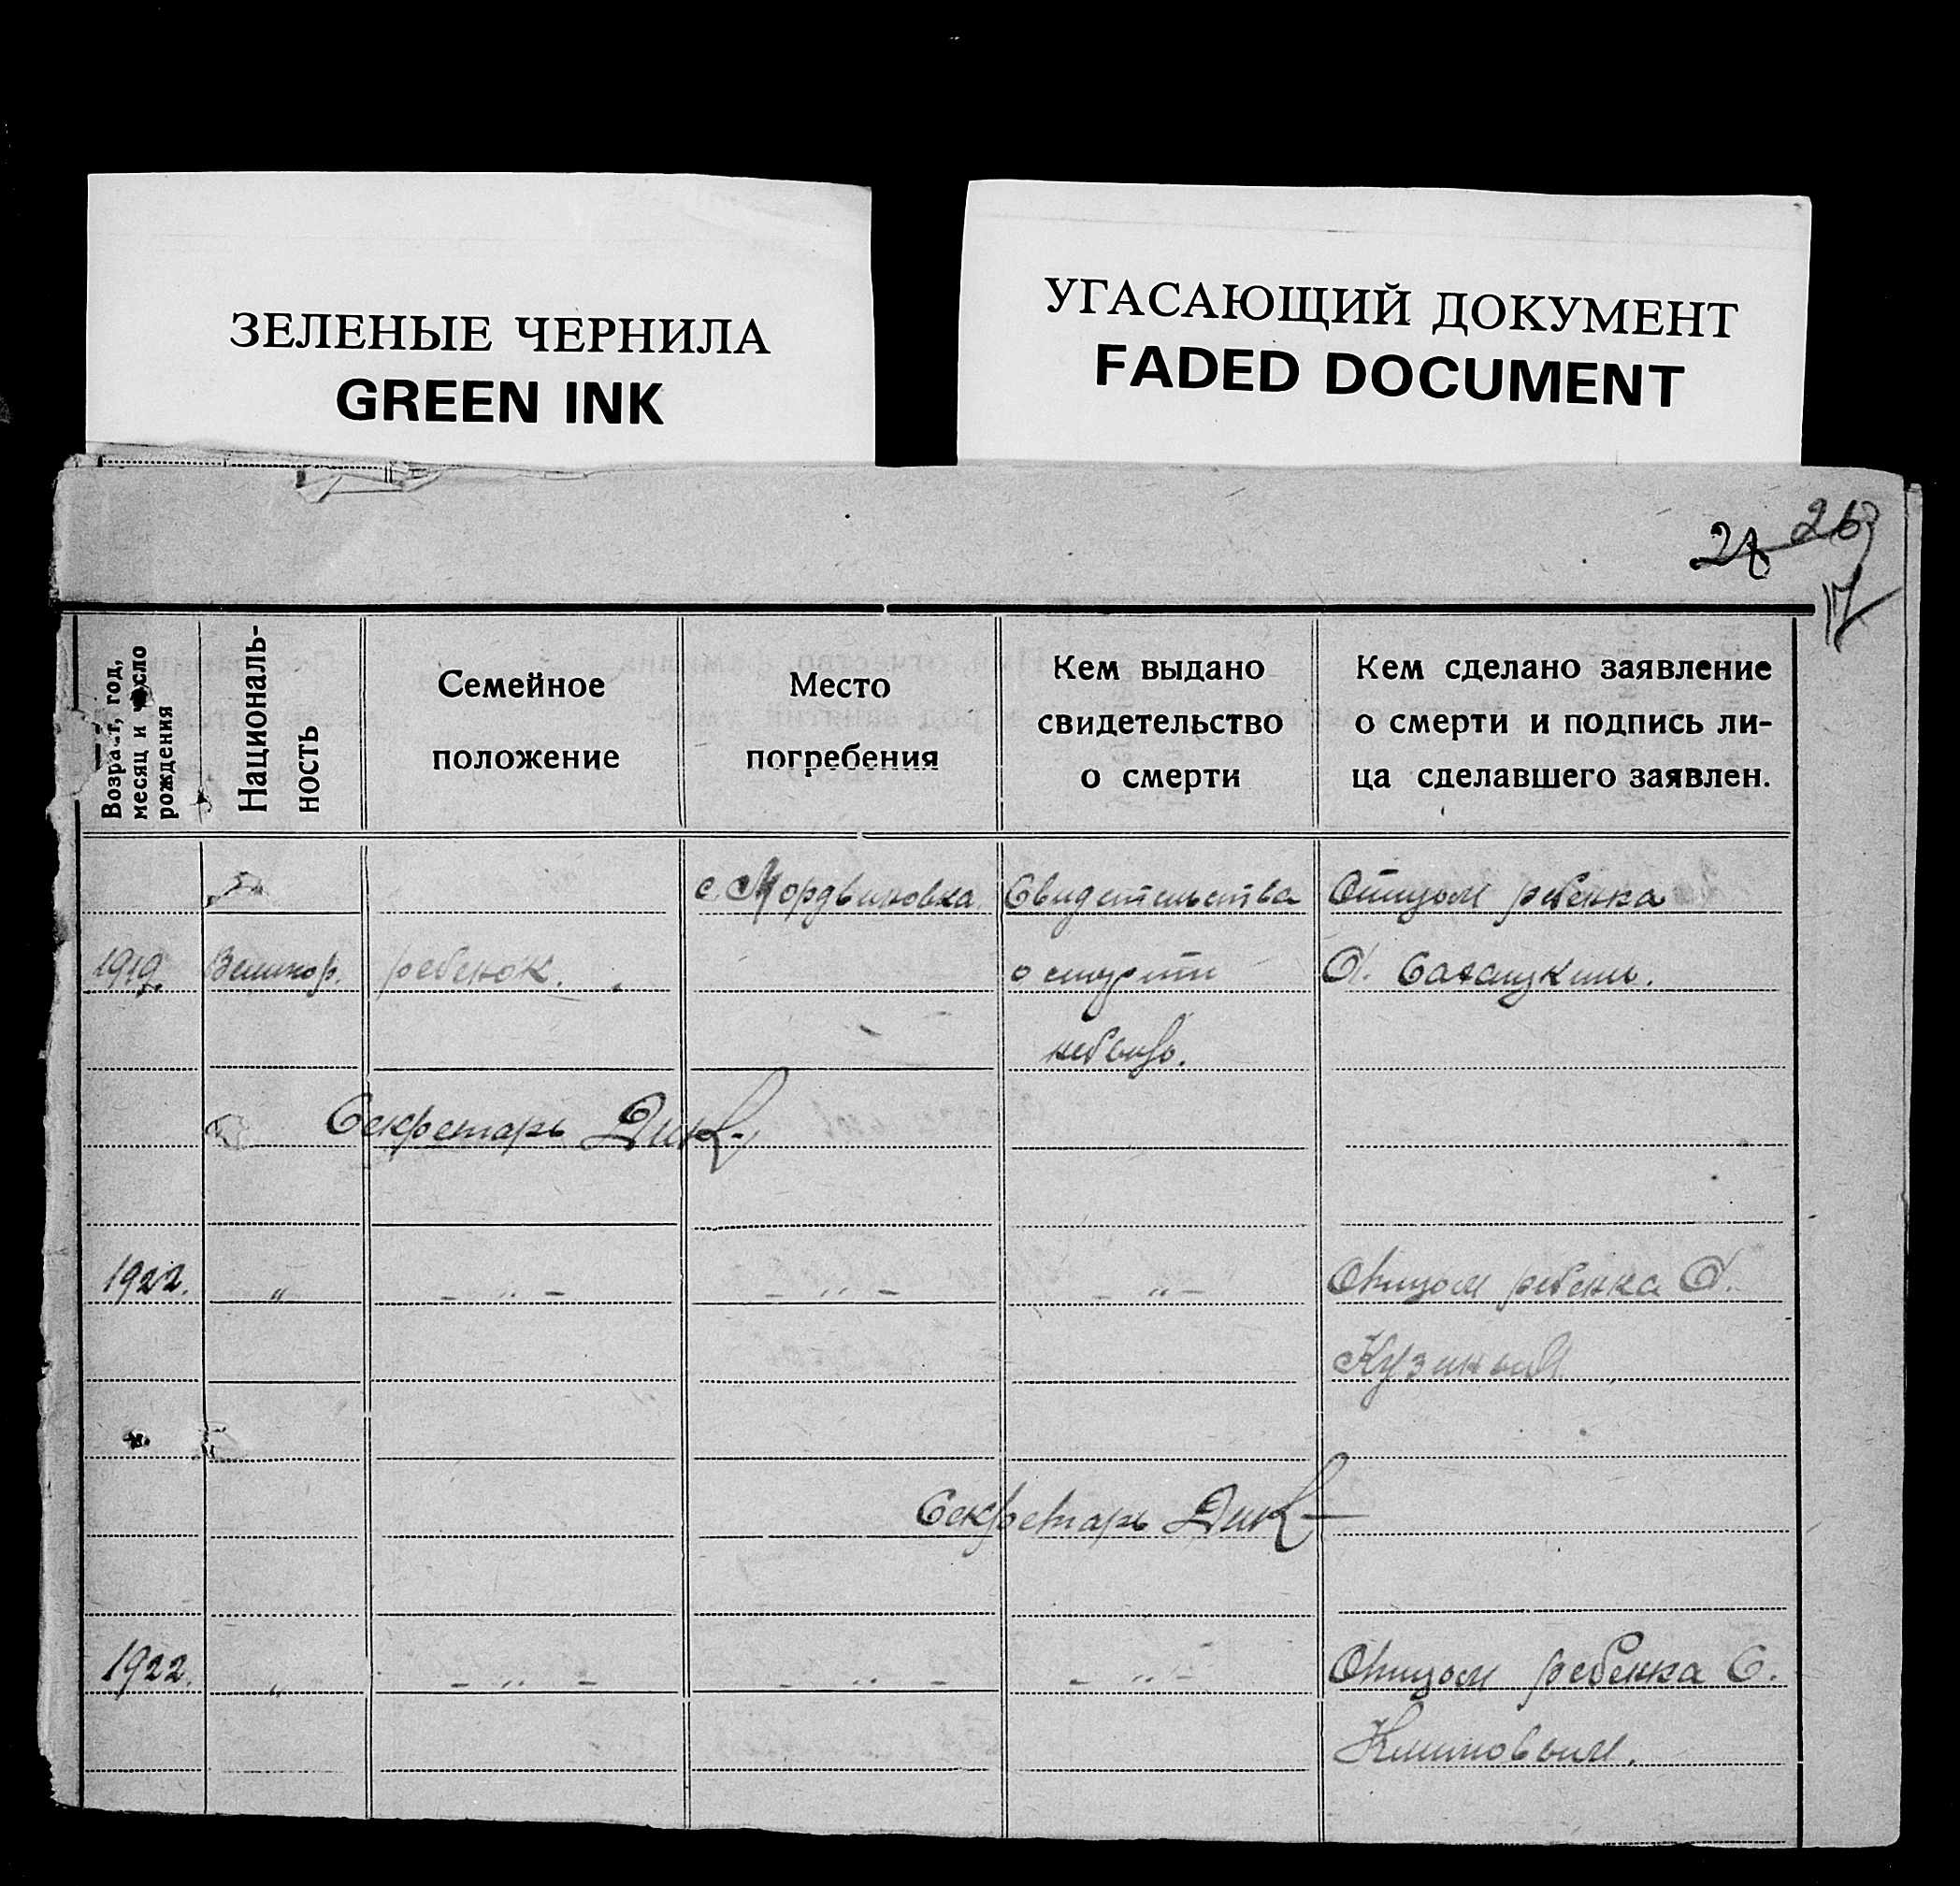 ЗЕЛЕНЫЕ ЧЕРНИЛА
GREEN INK
УГАСАЮЩИЙ ДОКУМЕНТ
FADED DOCUMENT
27 26
17
Возраст, год,
месяц и число
рождения
Националь-
ность
Семейное
положение
Место
погребения
Кем выдано
свидетельство
о смерти
Кем сделано заявление
о смерти и подпись ли-
ца сделавшего заявлен.
с. Мордвиновка Свидетельства Отцом ребенка
1919. Великор. ребенок. о смерти
небыло.
Секретарь Дик
1922. " - " - - " - - " - Отцом ребенка
Кузиным
Секретарь Дик
1922. " - " - - " - - " - Отцом ребенка С.
Климовым.